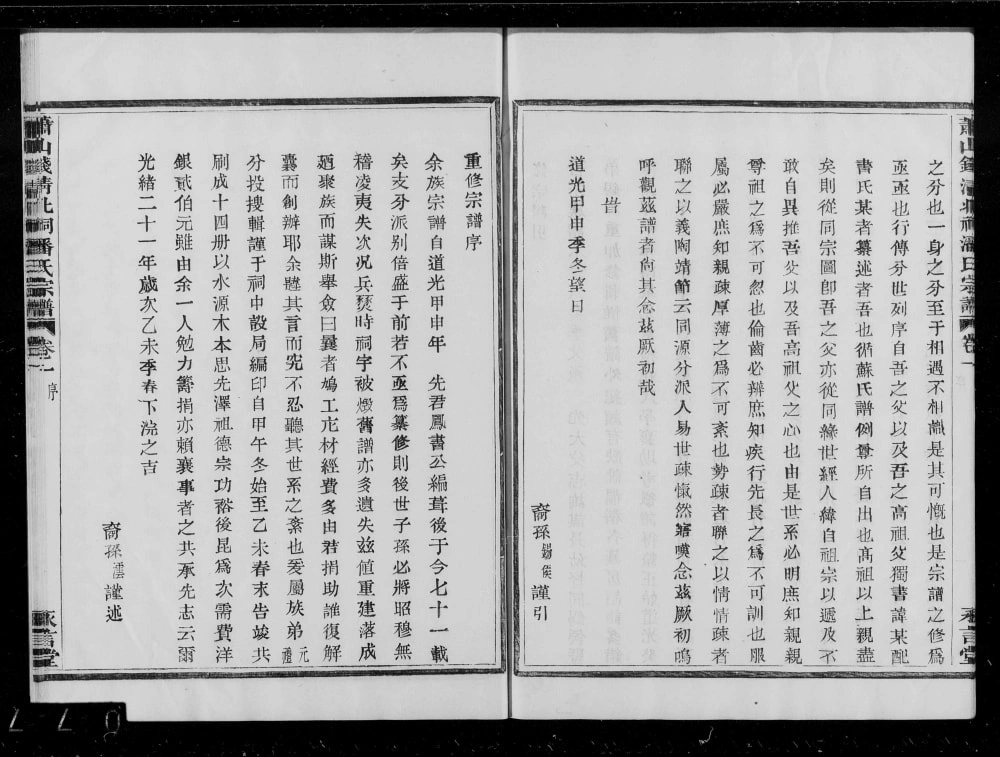 蕭山錢清北祠潘氏宗譜 卷一
永言堂
之分也一身之分至于相遇不相識是其可慨也是宗譜之修為
亟亟也行傳分世列序自吾之父以及吾之高祖父獨書諱某配
書氏某者纂述者吾也循蘇氏譜例尊所自出也高祖以上親盡
矣則從同宗圖卽吾之父亦從同緣世經人緯自祖宗以遞及不
敢自異推吾父以及吾高祖父之心也由是世系必明庶知親親
尊祖之為不可忽也倫齒必辨庶知疾行先長之為不可訓也服
屬必嚴庶知親疎厚薄之為不可紊也勢疎者聯之以情情疎者
聯之以義陶靖節云同源分派人易世疎慨然寤嘆念茲厥初嗚
呼觀茲譜者尙其念茲厥初哉
旹
道光甲申季冬望日
裔孫錫侯謹引
重修宗譜序
余族宗譜自道光甲申年 先君鳳書公編葺後于今七十一載
矣支分派别倍盛于前若不亟為纂修則後世子孫必將昭穆無
稽凌夷失次况兵燹時祠宇被燬舊譜亦多遺失茲值重建落成
廼聚族而謀斯舉僉曰曩者鳩工庀材經費多由君捐助誰復解
囊而創辦耶余韙其言而究不忍聽其世系之紊也爰屬族弟元禮
分投搜輯謹于祠中設局編印自甲午冬始至乙未春末告竣共
刷成十四册以水源木本思先澤祖德宗功裕後昆為次需費洋
銀貳伯元雖由余一人勉力籌捐亦賴襄事者之共承先志云爾
光緒二十一年歲次乙未季春下浣之吉
裔孫澐謹述
蕭山錢清北祠潘氏宗譜 卷之一 序
永言堂
077